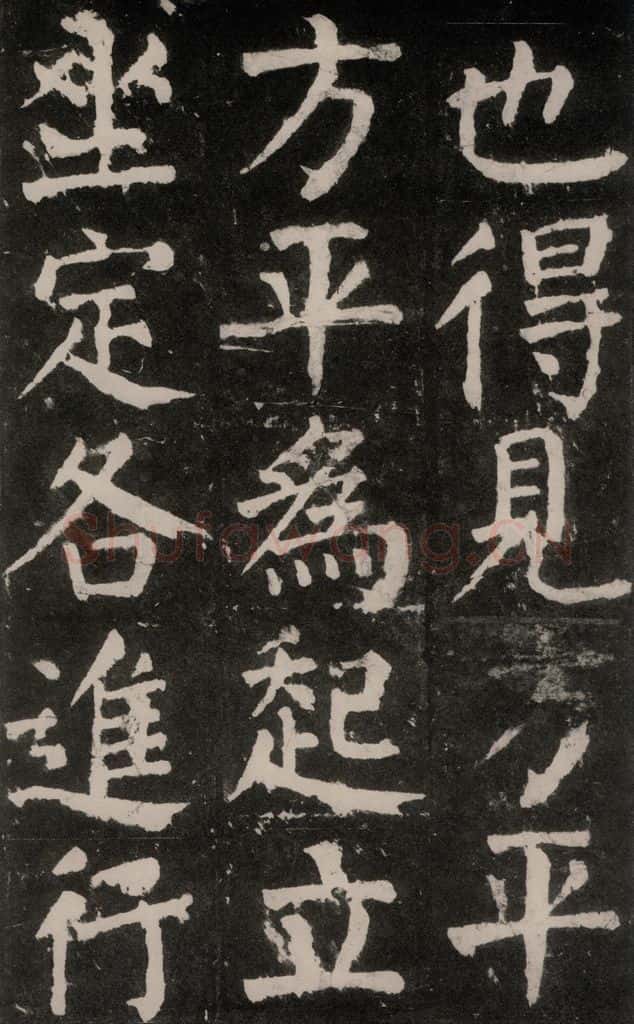 也得見方平
方平為起立
坐定各進行
Shufawang.CN